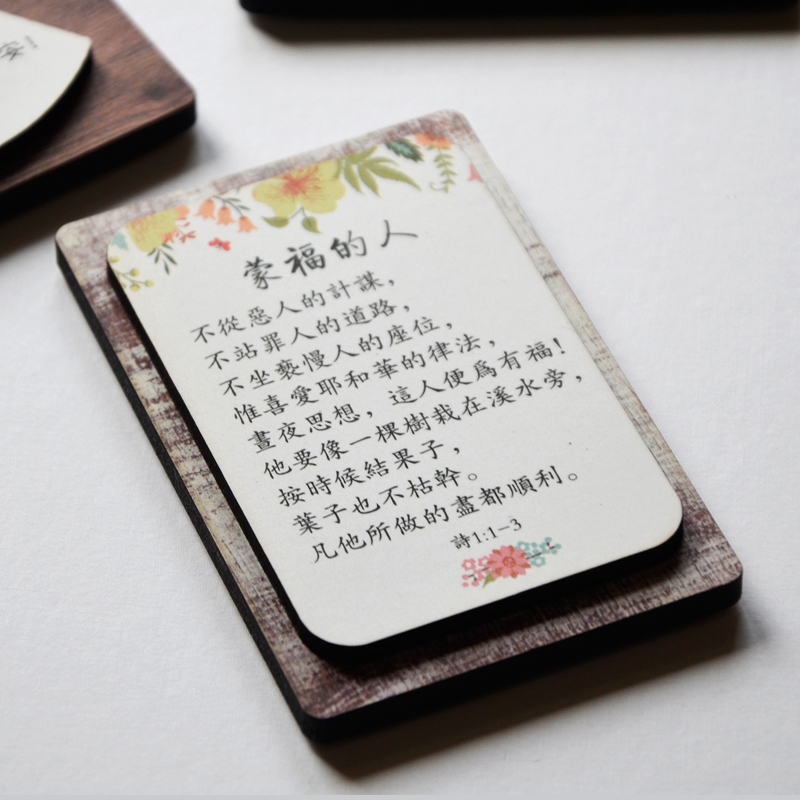 蒙福的人
不從惡人的計謀，
不站罪人的道路，
不坐褻慢人的座位，
惟喜愛耶和華的律法，
晝夜思想，這人便為有福！
他要像一棵樹栽在溪水旁，
按時候結果子，
葉子也不枯幹。
凡他所做的盡都順利。
詩1:1-3